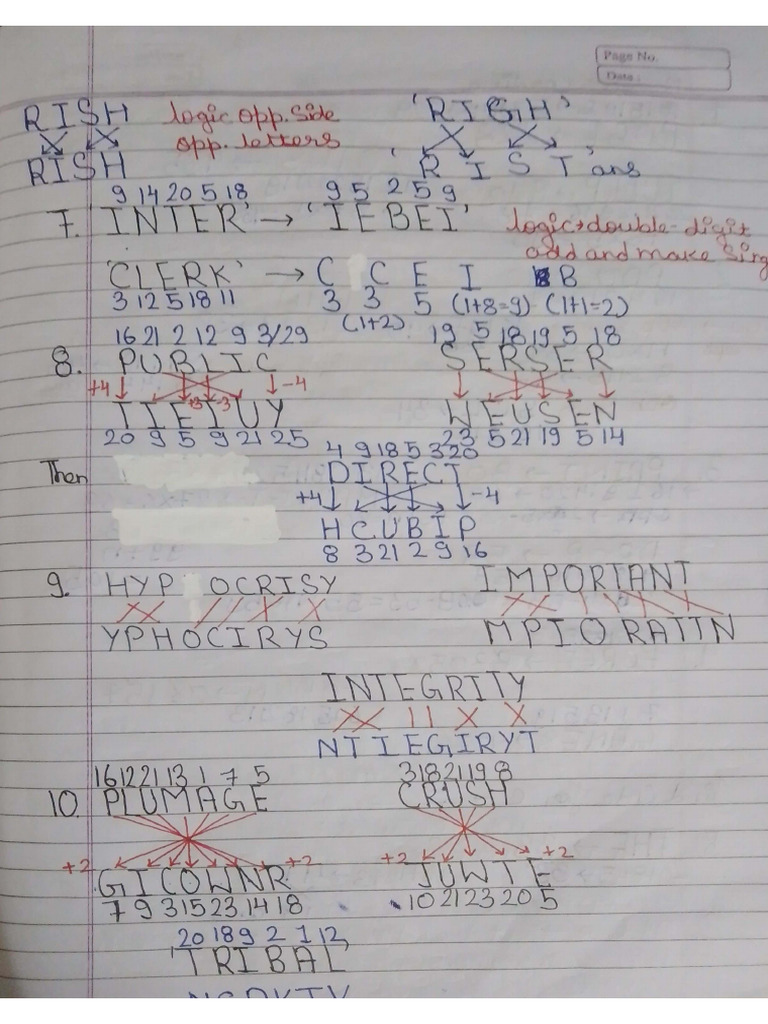 Page No.
Date
RISH logic opp. side 'RIGH'
opp. letters
RISH 'RIST' ans
9 14 20 5 18 9 5 2 5 9
7. 'INTER' → 'IEBEI' logic→double-digit
add and make sing
'CLERK' → C C E I B
3 12 5 18 11 3 3 5 (1+8=9) (1+1=2)
(1+2)
16 21 2 12 9 3/29 19 5 18 19 5 18
8. PUBLIC SERSER
+4 +3 -3 -4
TIEIUY WEUSEN
20 9 5 9 21 25 23 5 21 19 5 14
4 9 18 5 3 20
Then DIRECT
+4 -4
HCUBIP
8 3 21 2 9 16
9. HYP OCRISY IMPORTANT
YPHOCIRYS MPIORATTN
INTEGRITY
NTIEGIRYT
16 12 21 13 1 7 5 3 18 21 19 8
10. PLUMAGE CRUSH
+2 +2 +2 +2
GICOWNR JUWTE
7 9 3 15 23 14 18 10 21 23 20 5
20 18 9 2 1 12
'TRIBAL'